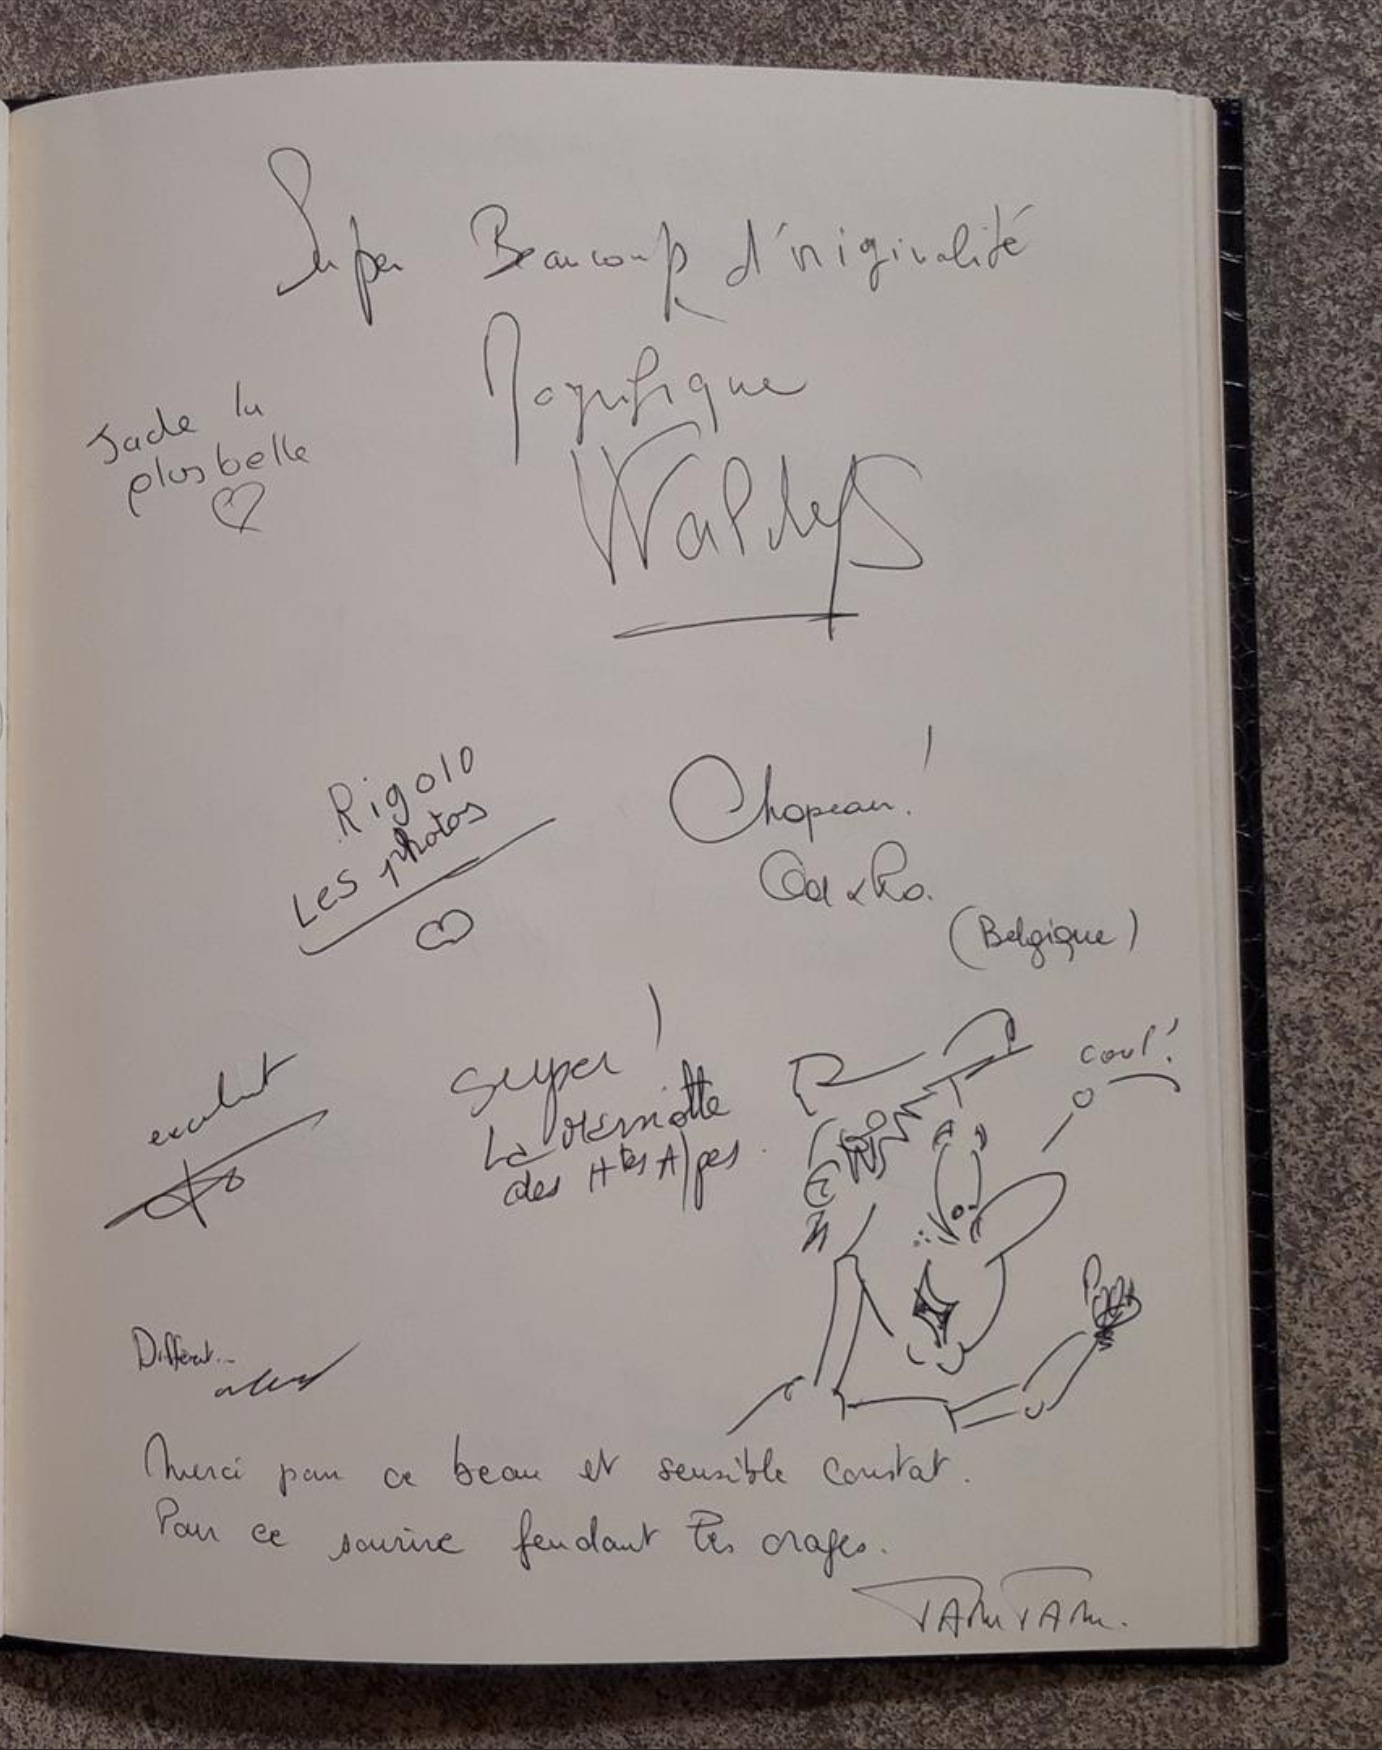 Super Beaucoup d'niginalité
Magnifique
Jade la
plus belle
Rigolo
Les photos
Chapeau!
(Belgique)
excellent
Super!
La Marmotte
des Htes Alpes.
cool!
Différent...
Merci pour ce beau et sensible constat.
Pour ce sourire fendant les orages.
TAMTAM.